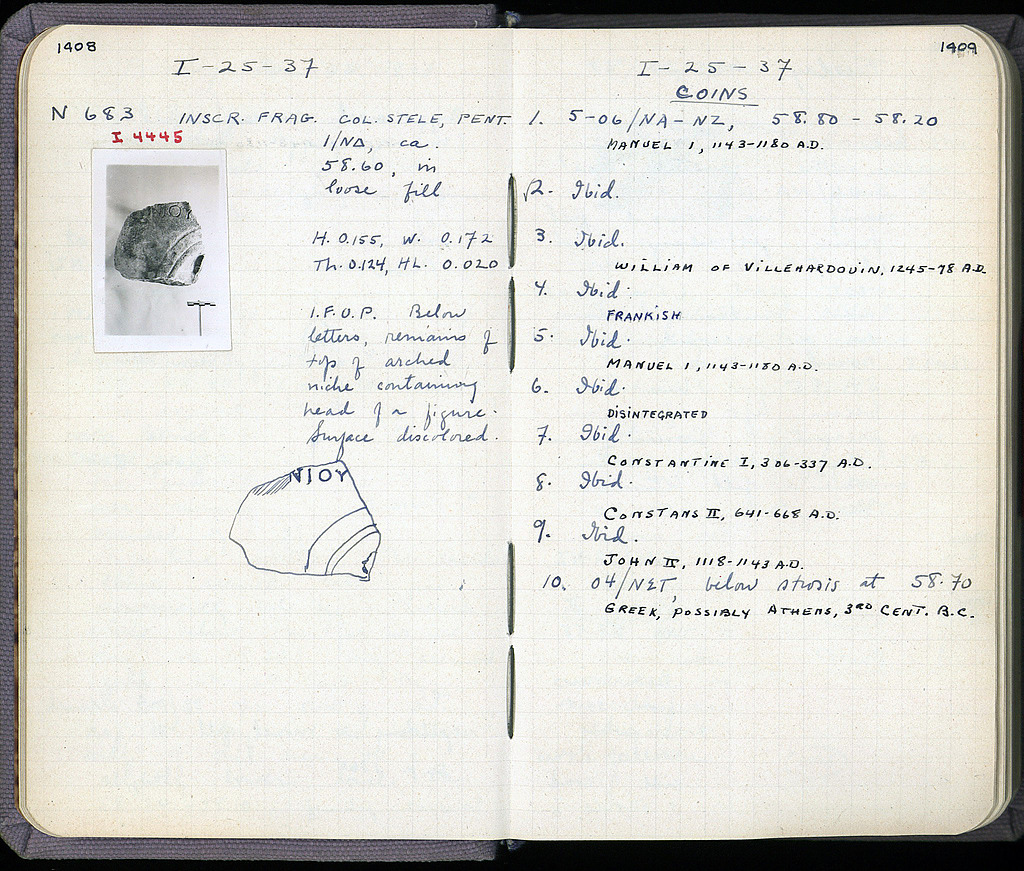 1408
I-25-37
N 683 INSCR. FRAG. COL. STELE, PENT.
I 4445
1/NΔ, ca.
58.60, in
loose fill
H. 0.155, W. 0.172
Th. 0.124, HL. 0.020
I.F.U.P. Below
letters, remains of
top of arched
niche containing
head of a figure.
Surface discolored.
ΝΙΟΥ
1409
I-25-37
COINS
1. 5-06/NA-NZ, 58.80 - 58.20
MANUEL I, 1143-1180 A.D.
2. Ibid.
3. Ibid.
WILLIAM OF VILLEHARDOUIN, 1245-78 A.D.
4. Ibid.
FRANKISH
5. Ibid.
MANUEL I, 1143-1180 A.D.
6. Ibid.
DISINTEGRATED
7. Ibid.
CONSTANTINE I, 306-337 A.D.
8. Ibid.
CONSTANS II, 641-668 A.D.
9. Ibid.
JOHN II, 1118-1143 A.D.
10. 04/NΣT, below strosis at 58.70
GREEK, POSSIBLY ATHENS, 3RD CENT. B.C.